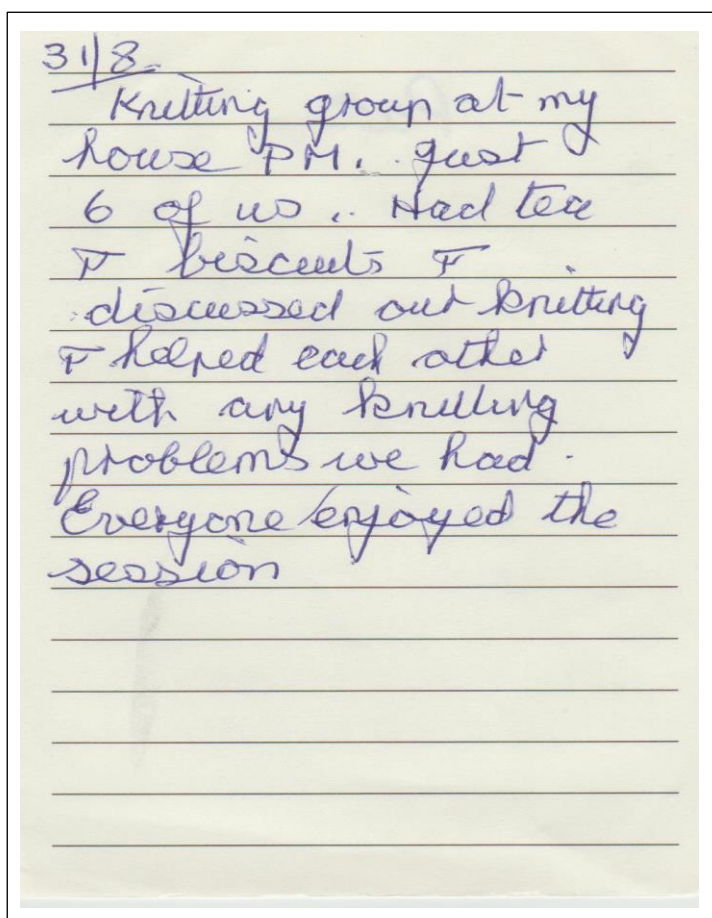 31/8
Knitting group at my
house PM. Just
6 of us .. Had tea
+ biscuits +
discussed our knitting
+ helped each other
with any knitting
problems we had.
Everyone enjoyed the
session